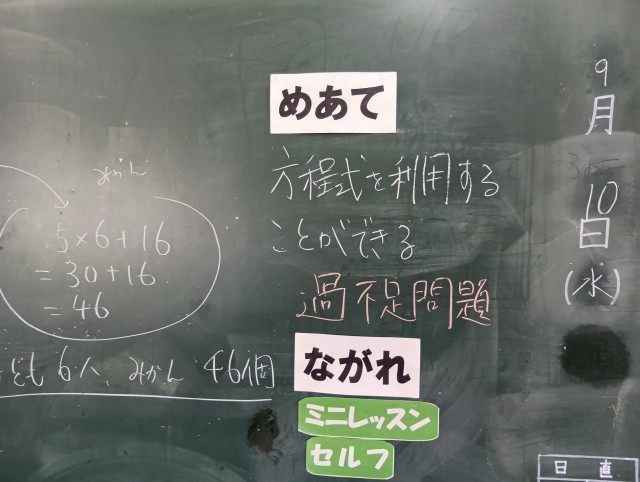 9月10日(水)
めあて
方程式を利用する
ことができる
過不足問題
みかん
5×6+16
=30+16
=46
ども6人、みかん 46個
ながれ
ミニレッスン
セルフ
日直